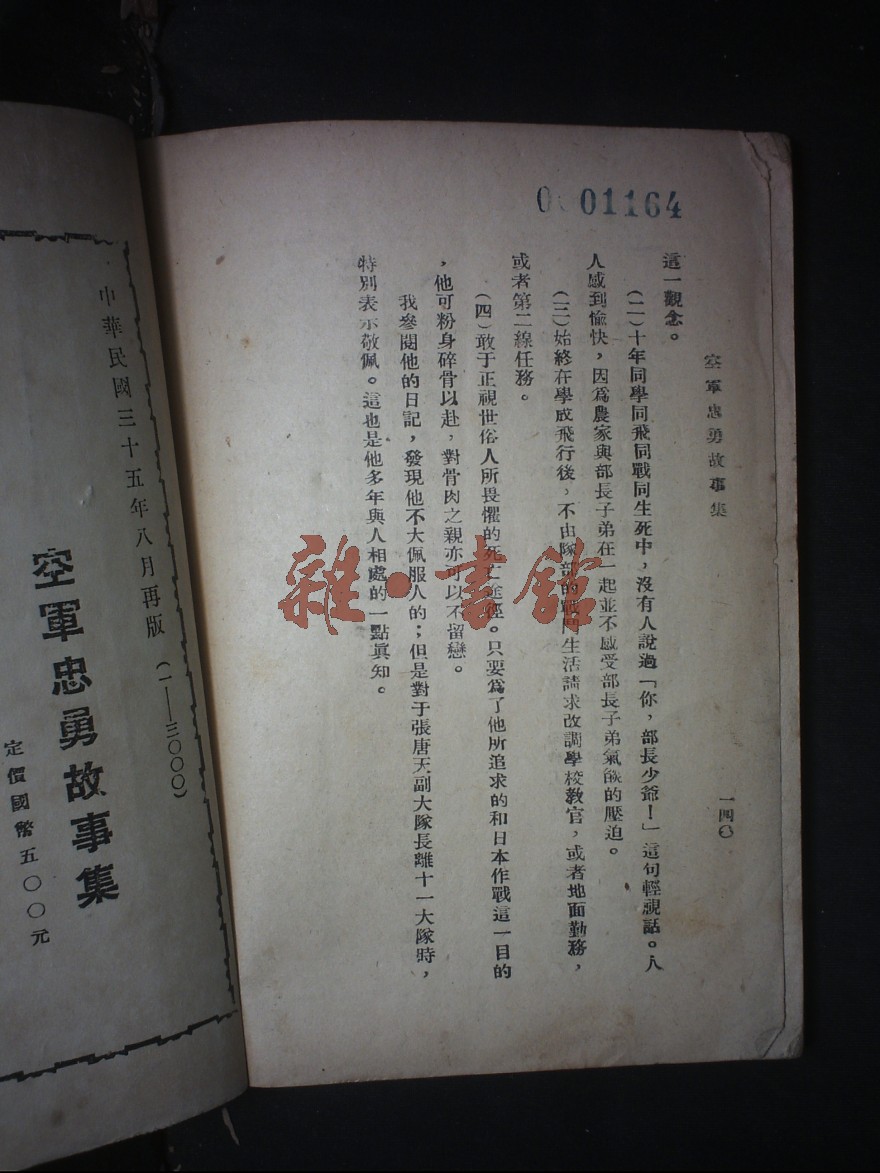 0 01164
空軍忠勇故事集
一四〇
這一觀念。
(二)十年同學同飛同戰同生死中，沒有人說過「你，部長少爺！」這句輕視話。人
人感到愉快，因爲農家與部長子弟在一起並不感受部長子弟氣燄的壓迫。
(三)始終在學成飛行後，不由隊部的戰鬥生活請求改調學校教官，或者地面勤務，
或者第二線任務。
(四)敢于正視世俗人所畏懼的死亡途徑。只要爲了他所追求的和日本作戰這一目的
，他可粉身碎骨以赴，對骨肉之親亦可以不留戀。
我參閱他的日記，發現他不大佩服人的；但是對于張唐天副大隊長離十一大隊時，
特別表示敬佩。這也是他多年與人相處的一點眞知。
雜·書館
中華民國三十五年八月再版(一——三〇〇〇)
空軍忠勇故事集
定價國幣五〇〇元